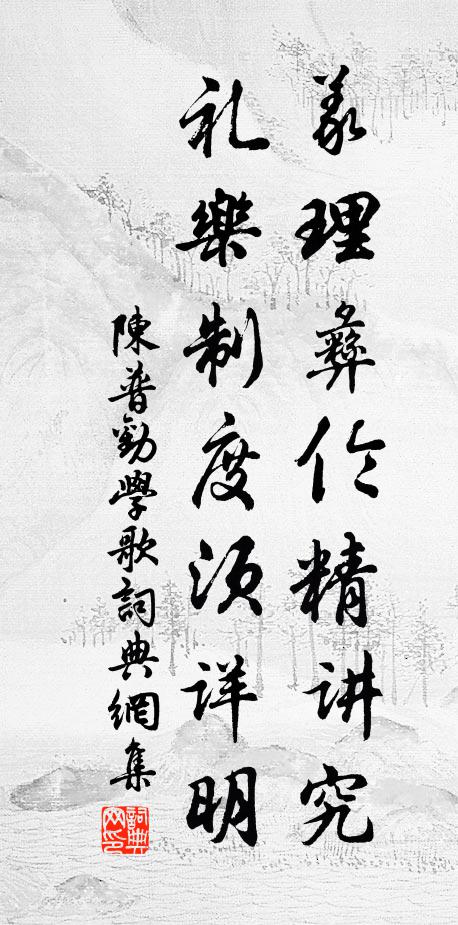 义理彝伦精讲究
礼樂制度须详明
陳普勸學歌詞典網集
詞典网印